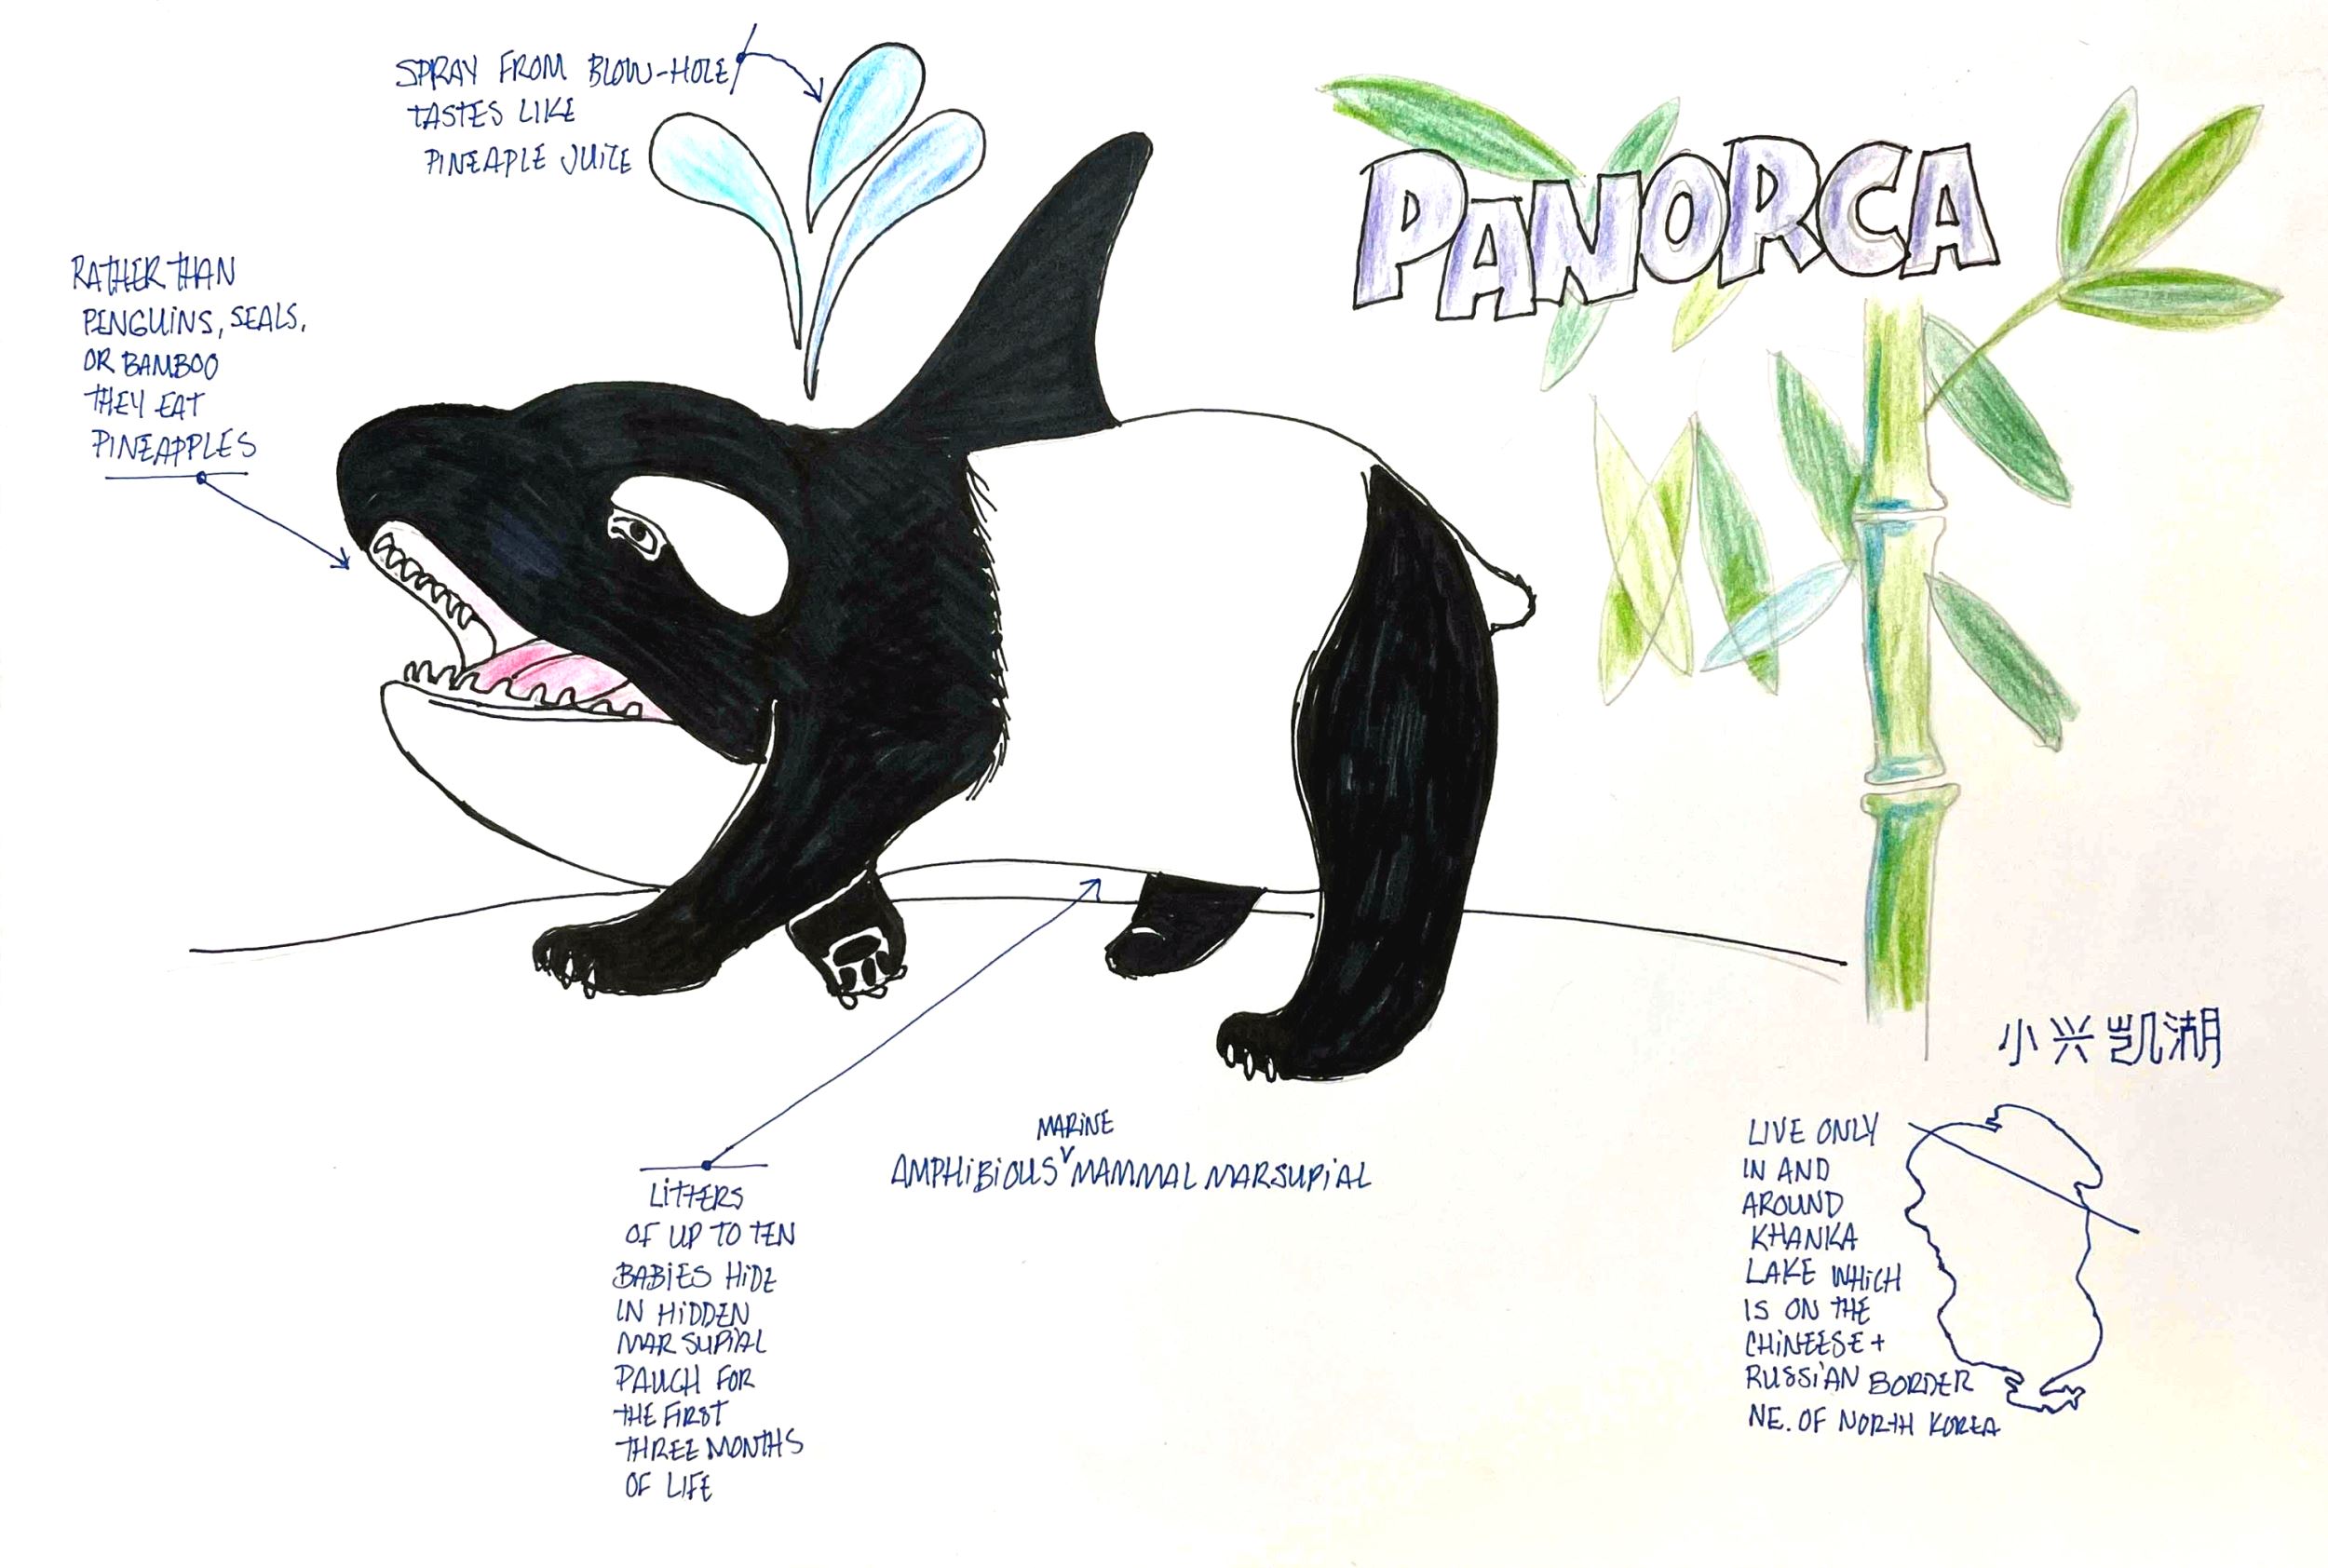 SPRAY FROM BLOW-HOLE
TASTES LIKE
PINEAPLE JUICE
PANORCA
RATHER THAN
PENGUINS, SEALS,
OR BAMBOO
THEY EAT
PINEAPPLES
小兴凯湖
LIVE ONLY
IN AND
AROUND
KHANKA
LAKE WHICH
IS ON THE
CHINEESE +
RUSSIAN BORDER
NE. OF NORTH KOREA
MARINE
AMPHIBIOUS ˅ MAMMAL MARSUPIAL
LITTERS
OF UP TO TEN
BABIES HIDE
IN HIDDEN
MARSUPIAL
PAUCH FOR
THE FIRST
THREE MONTHS
OF LIFE